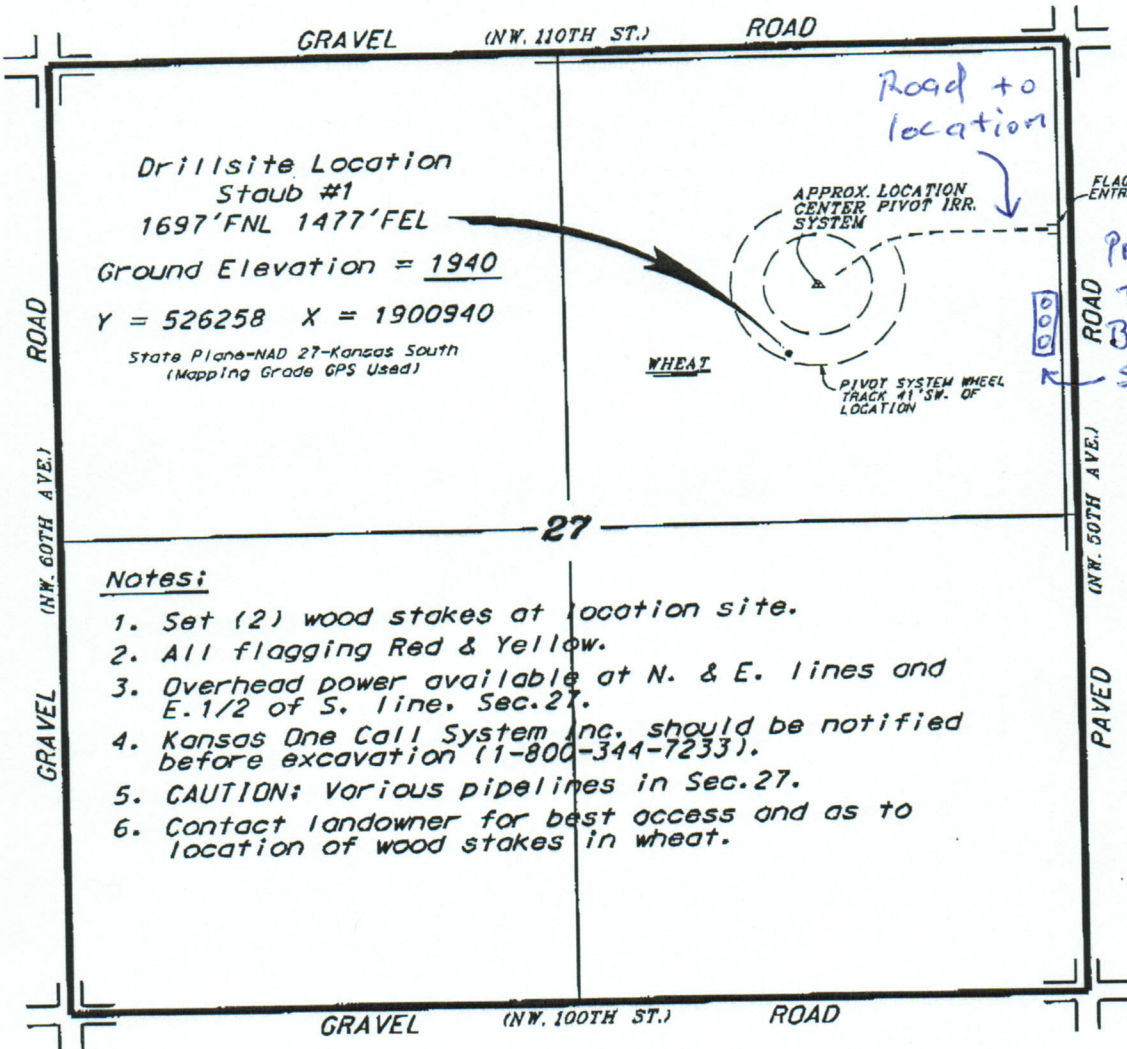 GRAVEL (NW. 110TH ST.) ROAD
Road to
location
Drillsite Location
Staub #1
1697'FNL 1477'FEL
Ground Elevation = 1940
Y = 526258 X = 1900940
State Plane-NAD 27-Kansas South
(Mapping Grade GPS Used)
APPROX. LOCATION
CENTER PIVOT IRR.
SYSTEM
WHEAT
PIVOT SYSTEM WHEEL
TRACK 41' SW. OF
LOCATION
ROAD
(NW. 60TH AVE.)
GRAVEL
ROAD
(NW. 50TH AVE.)
PAVED
27
Notes:
1. Set (2) wood stakes at location site.
2. All flagging Red & Yellow.
3. Overhead power available at N. & E. lines and
E.1/2 of S. line, Sec.27.
4. Kansas One Call System Inc. should be notified
before excavation (1-800-344-7233).
5. CAUTION: Various pipelines in Sec.27.
6. Contact landowner for best access and as to
location of wood stakes in wheat.
GRAVEL (NW. 100TH ST.) ROAD